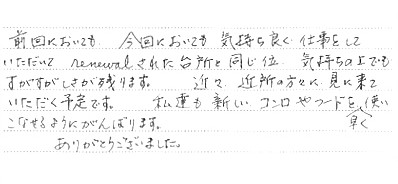 前回においても、今回においても気持ち良く仕事をして
いただいて renewalされた台所と同じ位、気持ちの上でも
すがすがしさが残ります。近々、近所の方々に見に来て
いただく予定です。私達も新しいコンロやフードを早く使い
こなせるようにがんばります。
ありがとうございました。